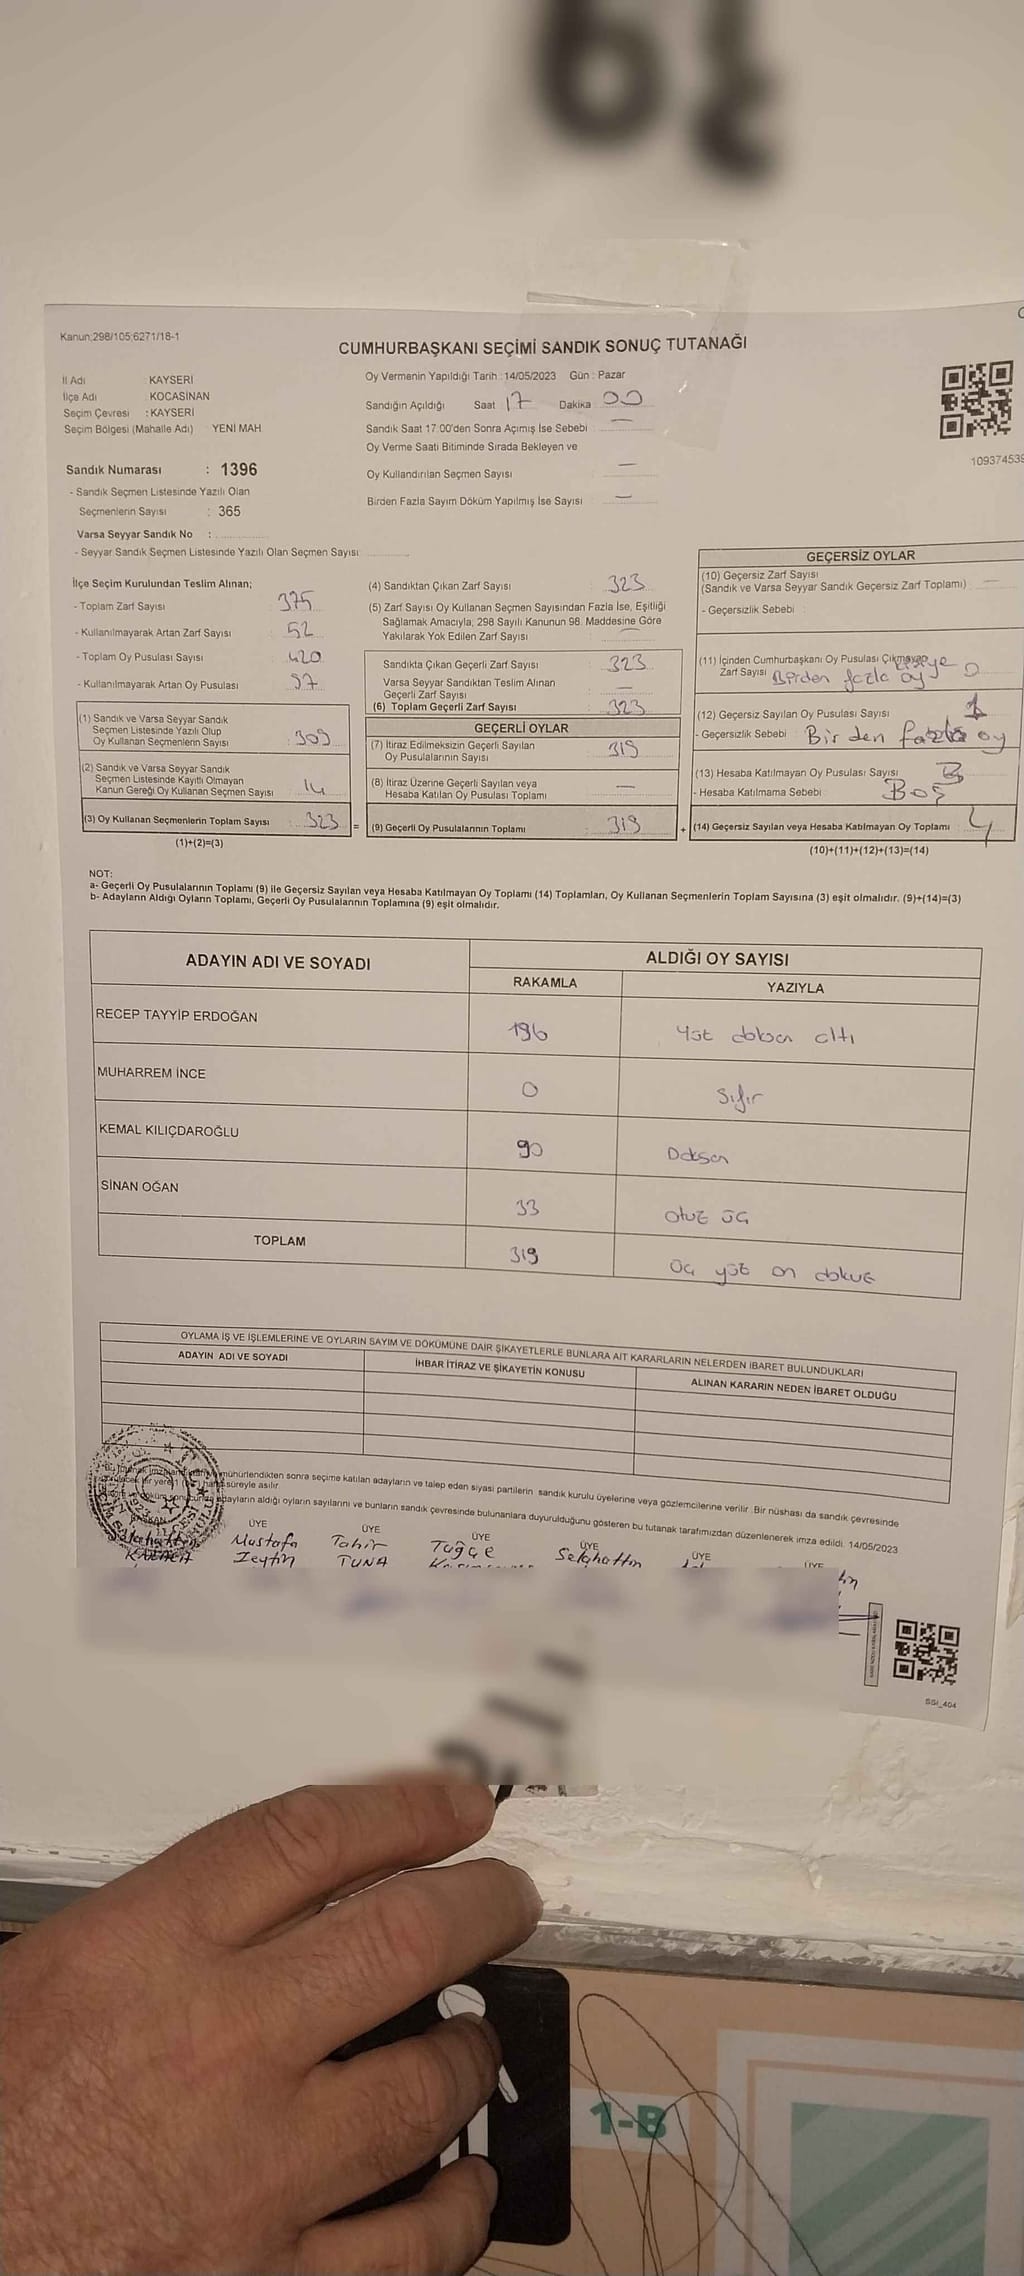 Kanun;298/105;6271/18-1
CUMHURBAŞKANI SEÇİMİ SANDIK SONUÇ TUTANAĞI
İl Adı : KAYSERİ
İlçe Adı : KOCASİNAN
Seçim Çevresi : KAYSERİ
Seçim Bölgesi (Mahalle Adı) YENİ MAH.
Oy Vermenin Yapıldığı Tarih : 14/05/2023 Gün : Pazar
Sandığın Açıldığı Saat 17 Dakika 00
Sandık Saat 17:00'den Sonra Açımış İse Sebebi : —
Oy Verme Saati Bitiminde Sırada Bekleyen ve
Oy Kullandırılan Seçmen Sayısı —
Birden Fazla Sayım Döküm Yapılmış İse Sayısı —
109374539
Sandık Numarası : 1396
- Sandık Seçmen Listesinde Yazılı Olan
Seçmenlerin Sayısı : 365
Varsa Seyyar Sandık No :
- Seyyar Sandık Seçmen Listesinde Yazılı Olan Seçmen Sayısı:
İlçe Seçim Kurulundan Teslim Alınan;
- Toplam Zarf Sayısı 375
- Kullanılmayarak Artan Zarf Sayısı : 52
- Toplam Oy Pusulası Sayısı : 420
- Kullanılmayarak Artan Oy Pusulası : 97
(1) Sandık ve Varsa Seyyar Sandık
Seçmen Listesinde Yazılı Olup
Oy Kullanan Seçmenlerin Sayısı : 309
(2) Sandık ve Varsa Seyyar Sandık
Seçmen Listesinde Kayıtlı Olmayan
Kanun Gereği Oy Kullanan Seçmen Sayısı : 14
(3) Oy Kullanan Seçmenlerin Toplam Sayısı : 323 =
(1)+(2)=(3)
(4) Sandıktan Çıkan Zarf Sayısı : 323
(5) Zarf Sayısı Oy Kullanan Seçmen Sayısından Fazla İse, Eşitliği
Sağlamak Amacıyla; 298 Sayılı Kanunun 98. Maddesine Göre
Yakılarak Yok Edilen Zarf Sayısı : —
Sandıkta Çıkan Geçerli Zarf Sayısı : 323
Varsa Seyyar Sandıktan Teslim Alınan
Geçerli Zarf Sayısı : —
(6) Toplam Geçerli Zarf Sayısı : 323
GEÇERLİ OYLAR
(7) İtiraz Edilmeksizin Geçerli Sayılan
Oy Pusulalarının Sayısı : 319
(8) İtiraz Üzerine Geçerli Sayılan veya
Hesaba Katılan Oy Pusulası Toplamı : —
(9) Geçerli Oy Pusulalarının Toplamı : 319 +
GEÇERSİZ OYLAR
(10) Geçersiz Zarf Sayısı
(Sandık ve Varsa Seyyar Sandık Geçersiz Zarf Toplamı) : —
- Geçersizlik Sebebi :
(11) İçinden Cumhurbaşkanı Oy Pusulası Çıkmayan
Zarf Sayısı Birden fazla oy 0
(12) Geçersiz Sayılan Oy Pusulası Sayısı : 1
- Geçersizlik Sebebi : Birden fazla oy
(13) Hesaba Katılmayan Oy Pusulası Sayısı : 3
- Hesaba Katılmama Sebebi : Boş
(14) Geçersiz Sayılan veya Hesaba Katılmayan Oy Toplamı : 4
(10)+(11)+(12)+(13)=(14)
NOT:
a- Geçerli Oy Pusulalarının Toplamı (9) ile Geçersiz Sayılan veya Hesaba Katılmayan Oy Toplamı (14) Toplamları, Oy Kullanan Seçmenlerin Toplam Sayısına (3) eşit olmalıdır. (9)+(14)=(3)
b- Adayların Aldığı Oyların Toplamı, Geçerli Oy Pusulalarının Toplamına (9) eşit olmalıdır.
ADAYIN ADI VE SOYADI ALDIĞI OY SAYISI
RAKAMLA YAZIYLA
RECEP TAYYİP ERDOĞAN 196 Yüz doksan altı
MUHARREM İNCE 0 Sıfır
KEMAL KILIÇDAROĞLU 90 Doksan
SİNAN OĞAN 33 otuz üç
TOPLAM 319 Üç yüz on dokuz
OYLAMA İŞ VE İŞLEMLERİNE VE OYLARIN SAYIM VE DÖKÜMÜNE DAİR ŞİKAYETLERLE BUNLARA AİT KARARLARIN NELERDEN İBARET BULUNDUKLARI
ADAYIN ADI VE SOYADI İHBAR İTİRAZ VE ŞİKAYETİN KONUSU ALINAN KARARIN NEDEN İBARET OLDUĞU
mühürlendikten sonra seçime katılan adayların ve talep eden siyasi partilerin sandık kurulu üyelerine veya gözlemcilerine verilir. Bir nüshası da sandık çevresinde
süreyle asılır.
adayların aldığı oyların sayılarını ve bunların sandık çevresinde bulunanlara duyurulduğunu gösteren bu tutanak tarafımızdan düzenlenerek imza edildi. 14/05/2023
ÜYE ÜYE ÜYE ÜYE ÜYE ÜYE
Mustafa Tahir Tuğçe Selahattin
Zeytin TUNA
SGİ_404
1-B